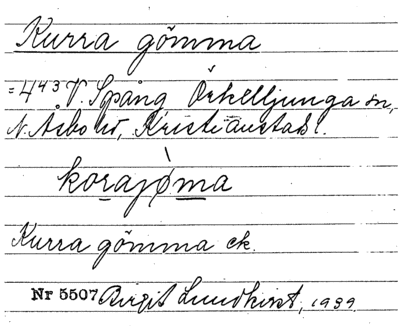 Kurra gömma
=443 V. Spång, Örkelljunga sn,
N. Åsbo hd, Kristianstads l.
korajøma
Kurra gömma ck.
Nr 5507 Birgit Lundkvist, 1939.